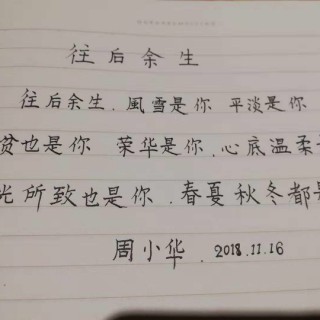 往后余生
往后余生.風雪是你 平淡是你
贫也是你 荣华是你.心底温柔
光所致也是你.春夏秋冬都是
周小华.2018.11.16